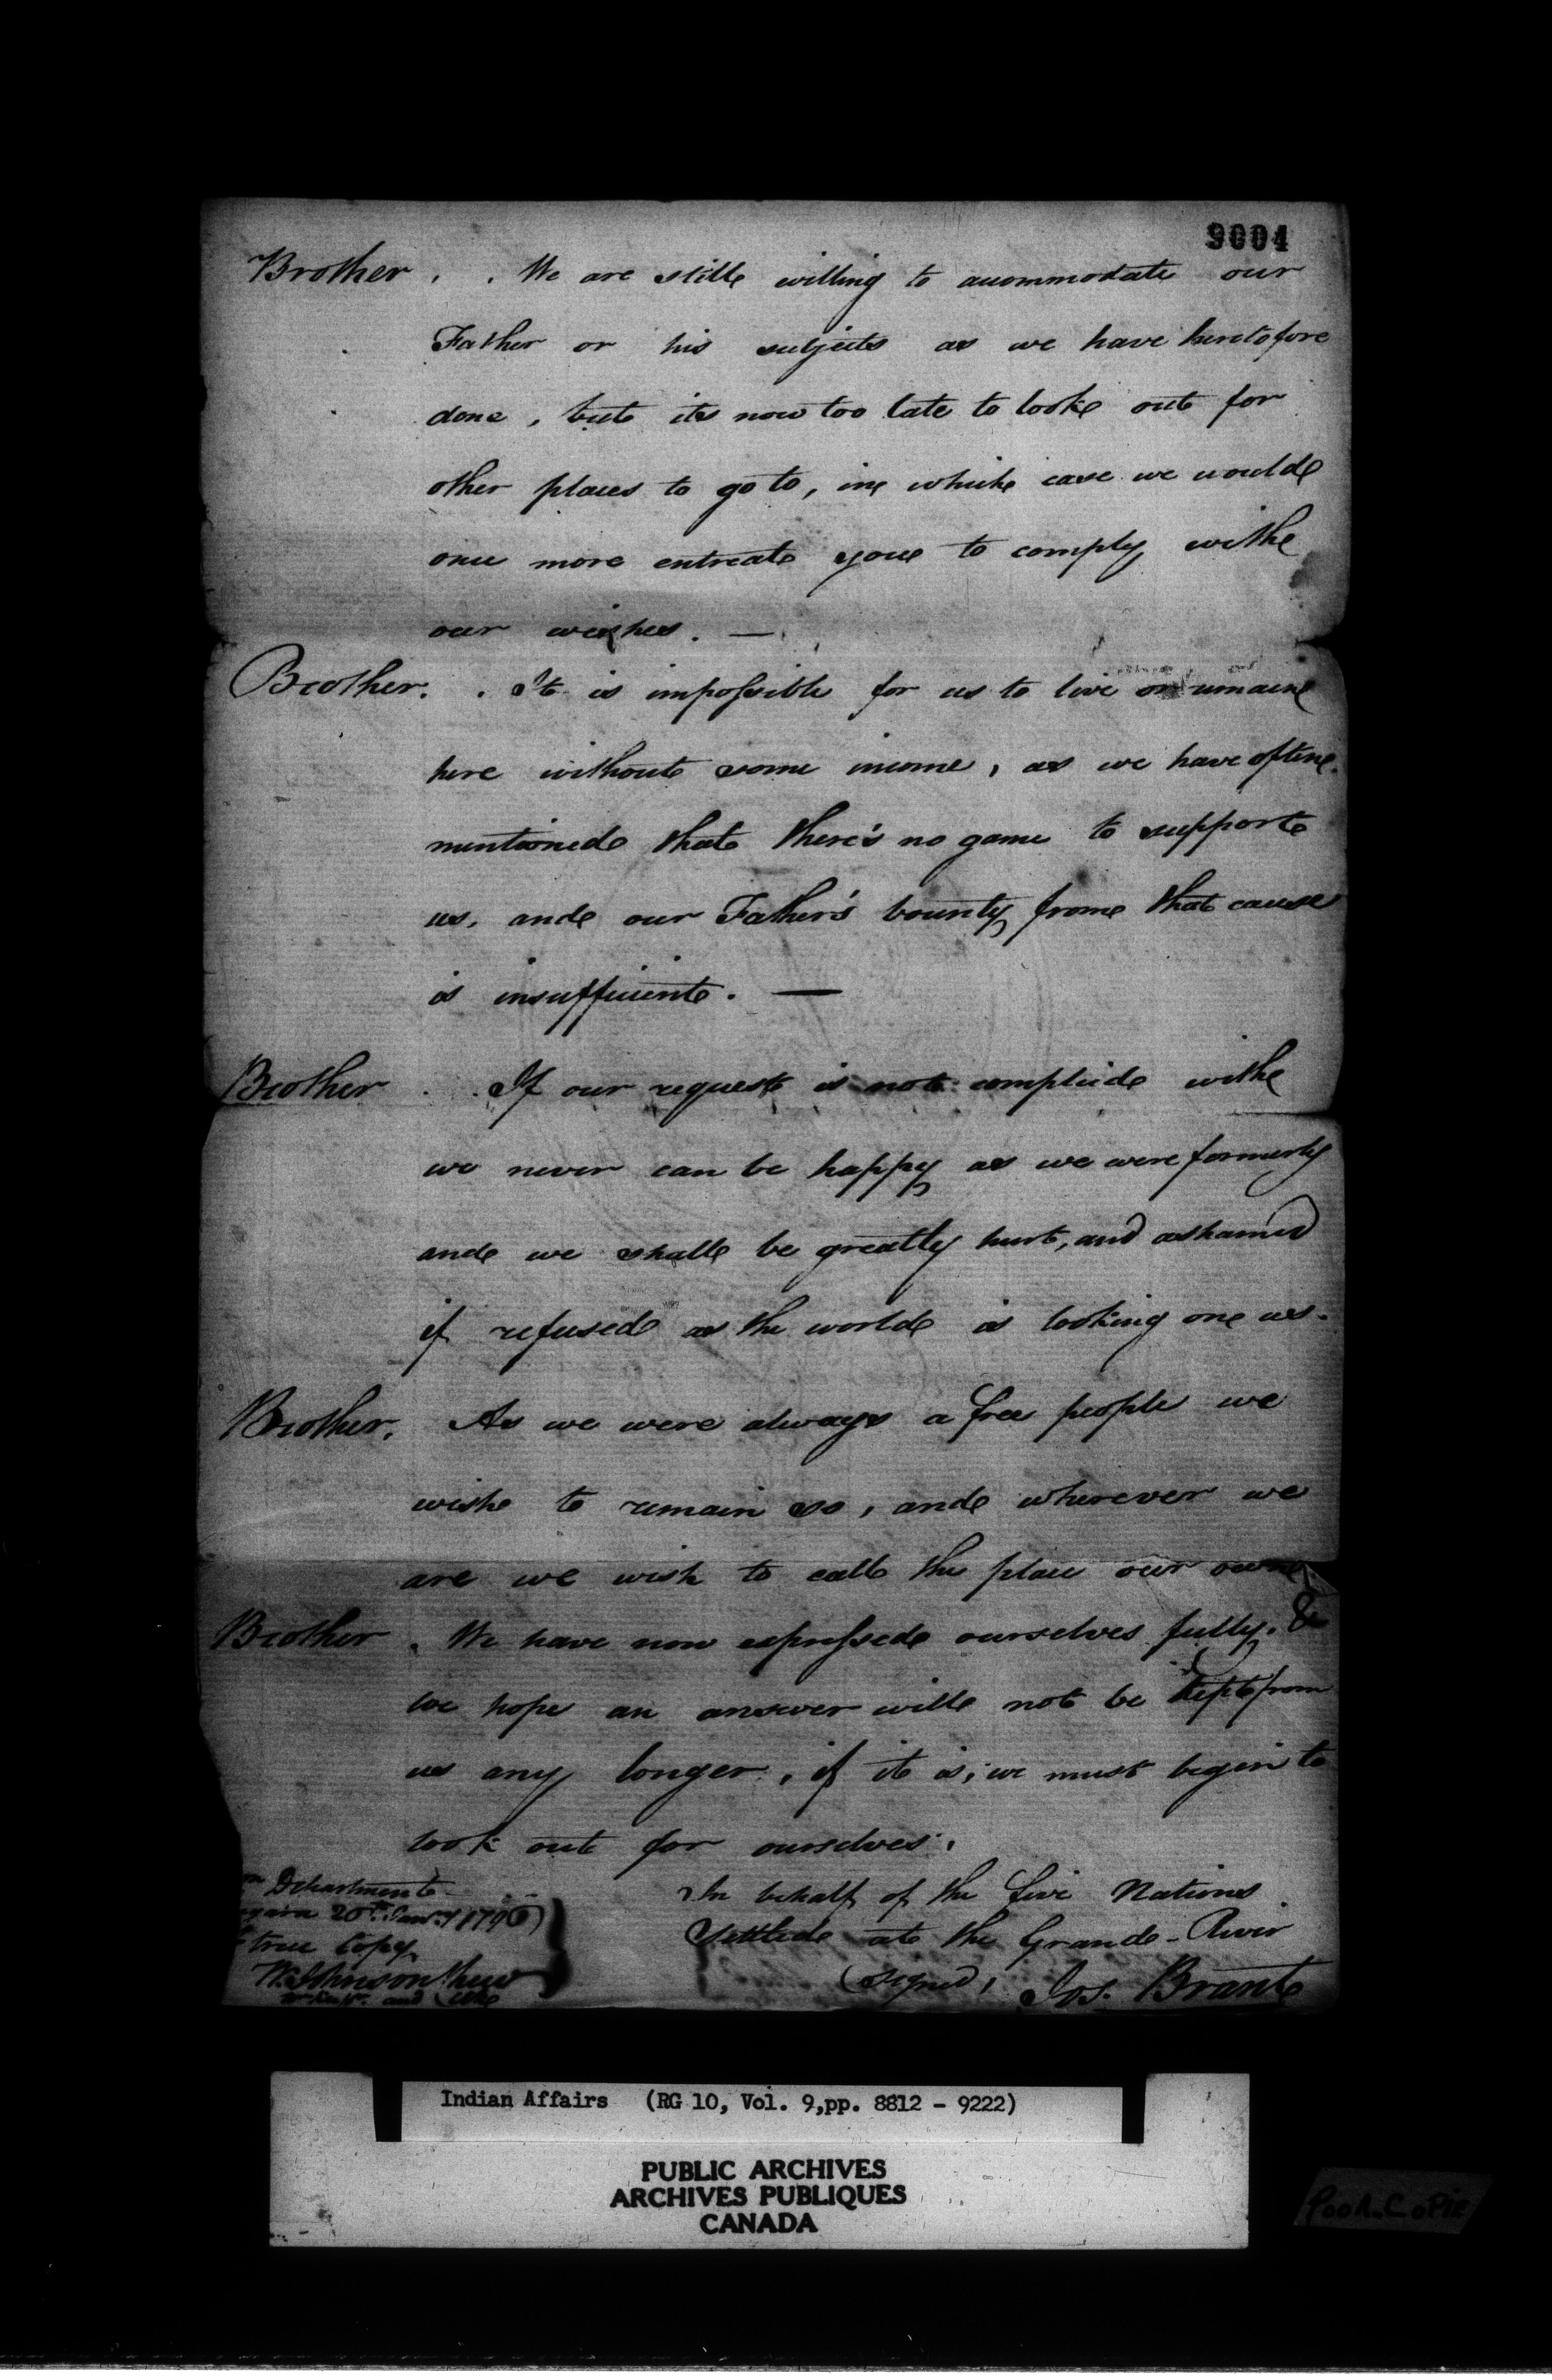 9004
Brother . . We are still willing to accommodate our
Father or his subjects as we have heretofore
done, but its now too late to look out for
other places to go to, in which case we would
once more entreat you to comply with
our wishes. —
Brother. . It is impossible for us to live or remain
here without some income, as we have often
mentioned that there's no game to support
us, and our Father's bounty from that cause
is insufficient. —
Brother . . If our request is not complied with
we never can be happy as we were formerly
and we shall be greatly hurt, and asham'd
if refused as the world is looking on us.
Brother. As we were always a free people we
wish to remain so, and wherever we
are we wish to call the place our own
Brother . We have now expressed ourselves fully. &
we hope an answer will not be kept from
us any longer, if it is, we must begin to
look out for ourselves.
Department
20th Jany 1796
true Copy
W. Johnson Chew
In behalf of the Five Nations
Settled at the Grand-River
(signed) Jos. Brant
Indian Affairs (RG 10, Vol. 9, pp. 8812 - 9222)
PUBLIC ARCHIVES
ARCHIVES PUBLIQUES
CANADA